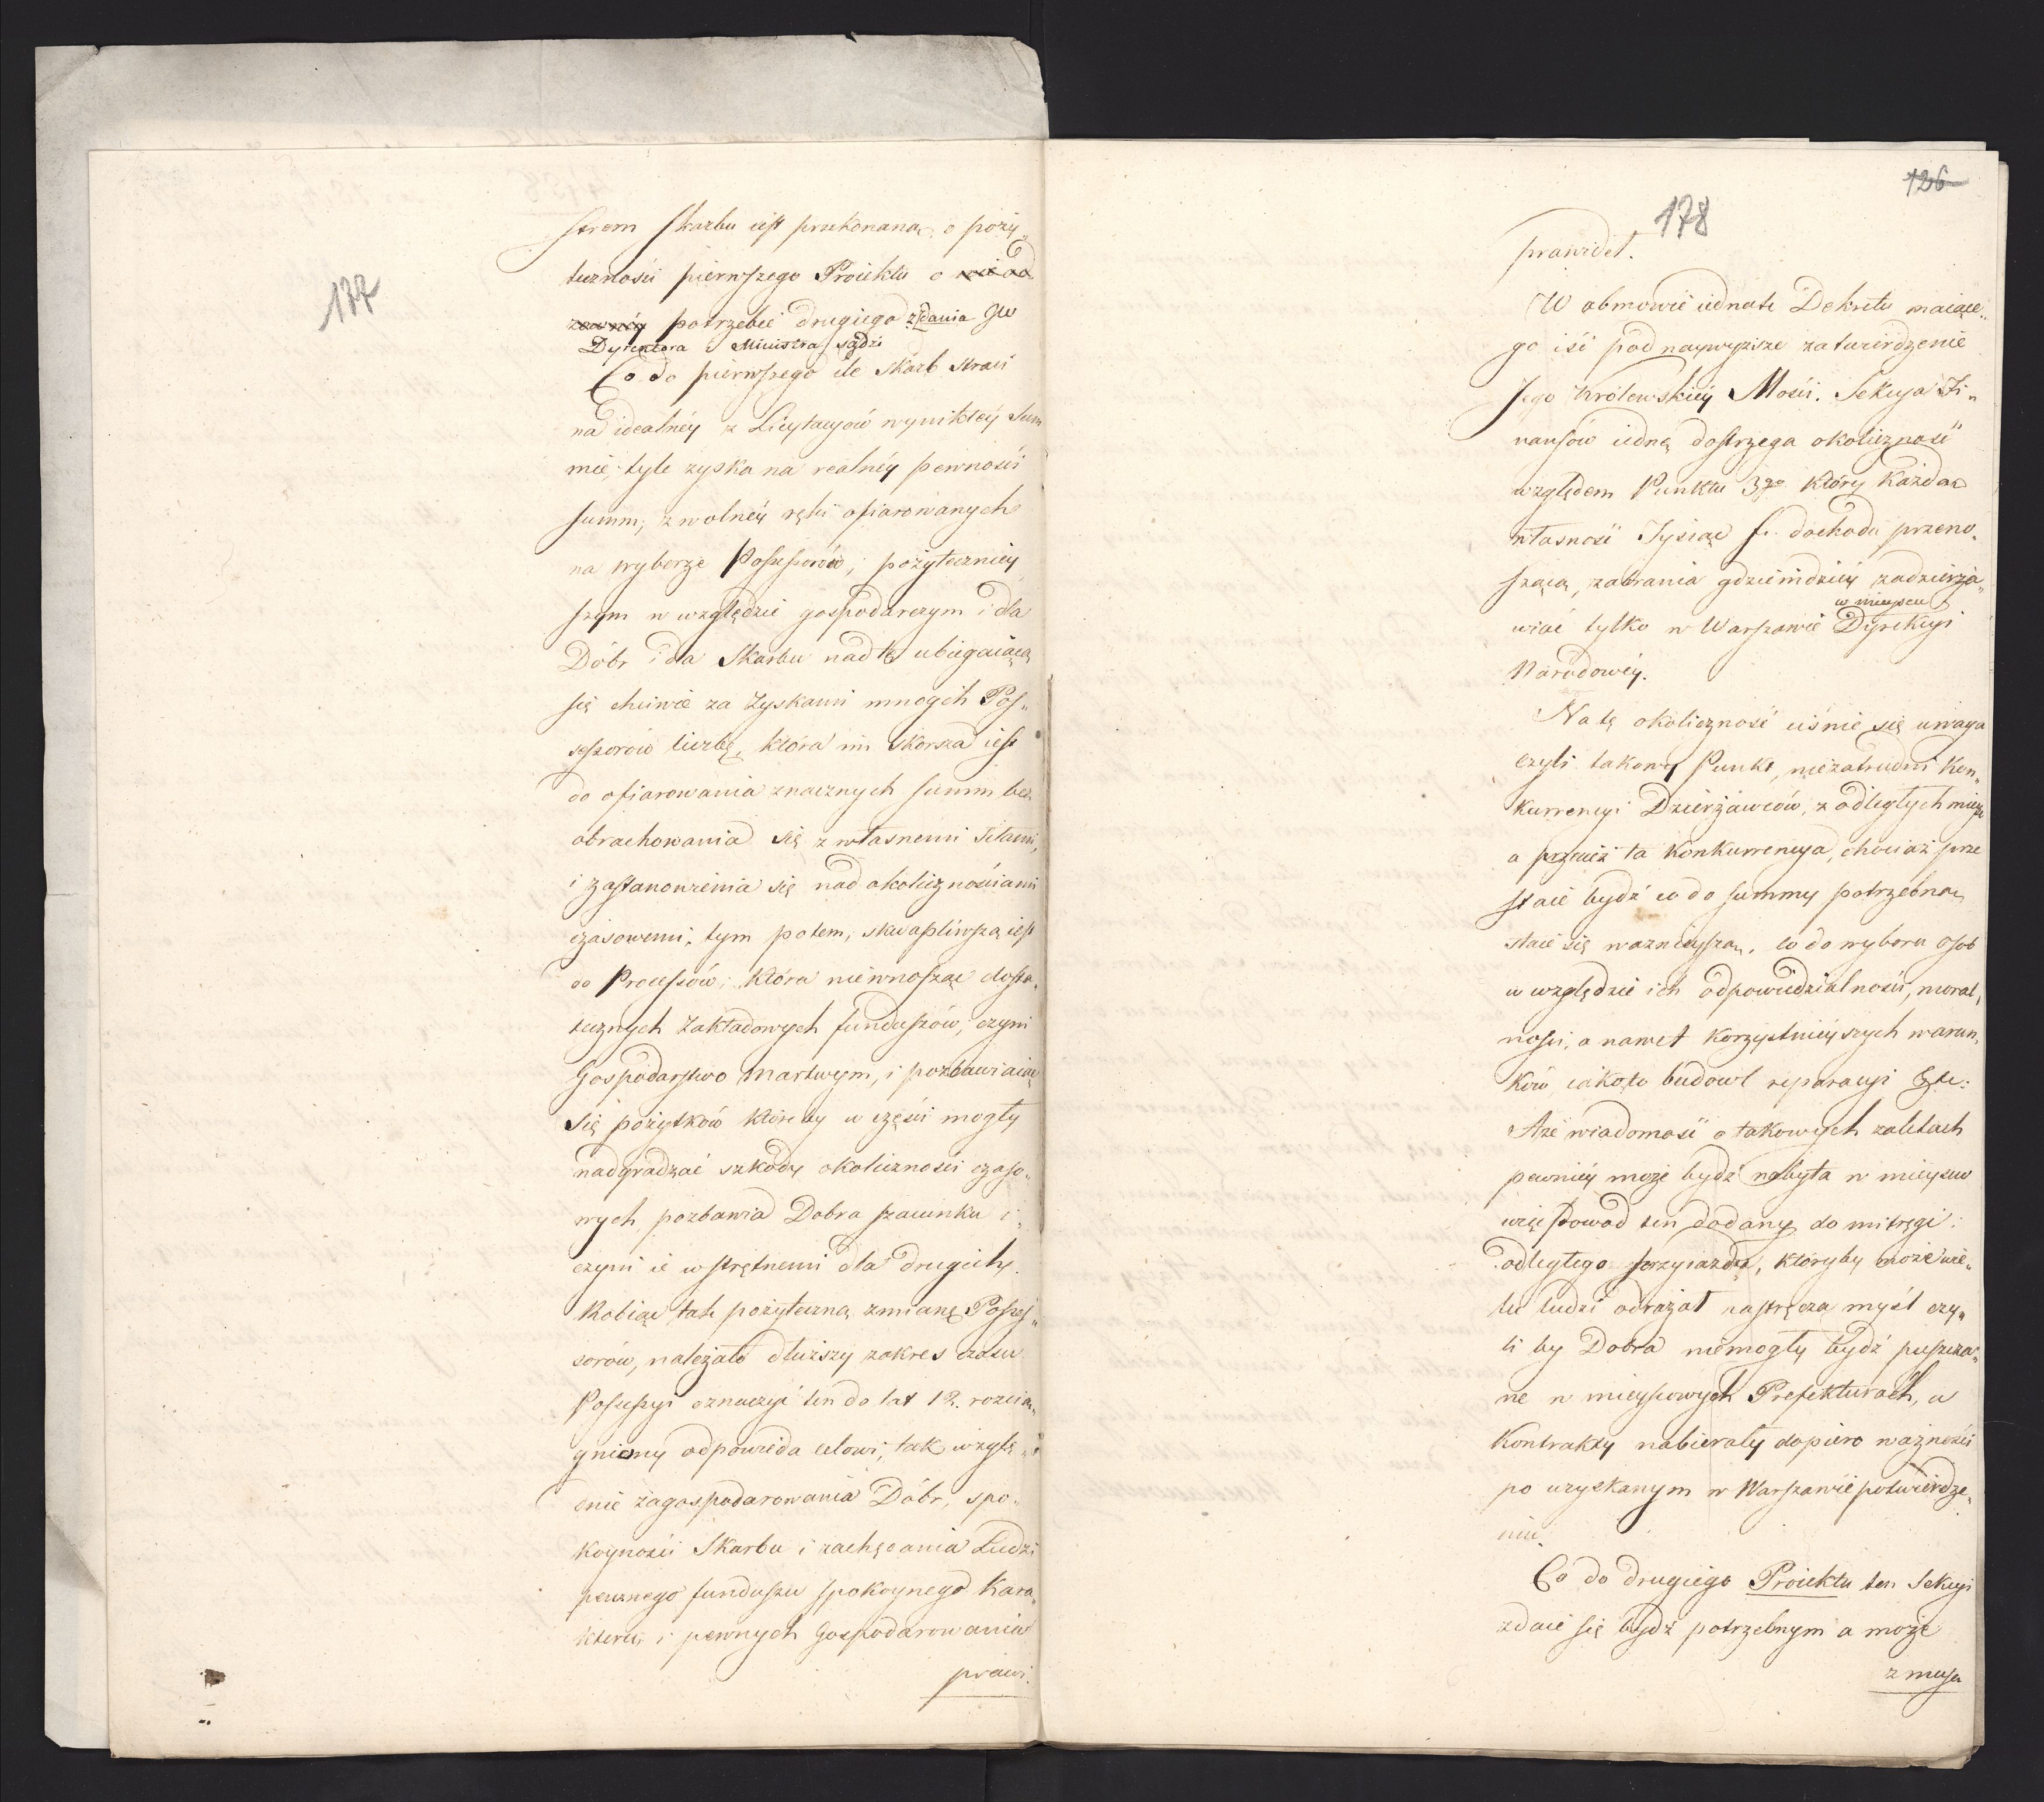 177
strem Skarbu iest przekonaną, o poży„
teczności pierwszego Proiektu o
potrzebie drugiego żądania JW
Dyrektora Ministra sądzi
Co do pierwszego ile Skarb straci
na idealnéy z Licytacyów wynikłéy Sum
mie, tyle zyska na realnéy pewności
summ, z wolnéy ręki ofiarowanych
na wyborze Possessorów, pożyteczniey
szym w względzie gospodarczym i dla
Dóbr i dla Skarbu nad tę ubiegaiącą
się chciwie za Zyskami mnogich Pos„
sessorów liczbę, która im skorsza iest
do ofiarowania znacznych summ bez
obrachowania się z własnemi Siłami,
i zastanowienia się nad okolicznościami
czasowemi, tym potem, skwapliwszą iest
do Processów; która niewnosząc dosta„
tecznych Zakładowych funduszów, czyni
Gospodarstwo martwym, i pozbawiaiąc
się pożytków któreby w części mogły
nadgradzać szkody okoliczności czaso„
wych pozbawia Dobra szacunku i
czyni ie wstrętnemi dla drugich.
Robiąc tak pożyteczną zmianę Posses„
sorów, należało dłuższy zakres czasu
Possessyi oznaczyć ten do lat 12. rozcią„
gniony odpowieda celowi, tak wzglę„
dnie zagospodarowania Dóbr, spo„
koyności Skarbu i zachęcania Ludzi
pewnego funduszu spokoynego Kara„
kteru, i pewnych Gospodarowania
prawi.
126
178
prawideł.
W obmowie iednak Dekretu maiące„
go iść pod naywyższe zatwierdzenie
Jego Królewskiéy Mości. Sekcya Fi„
nansów iedną dostrzega okoliczność
względem Punktu 3go który każdą
własność Tysiąc f. dochodu przeno„
szącą, zabrania gdzieindziéy zadzierża„
w mieyscu
wiać tylko w Warszawie Dyrekcyi
Narodowéy.
Na tę okoliczność ciśnie się uwaga
czyli takowy Punkt, niezatrudni Kon„
kurrencyi Dzierżawców, z odległych mieysc
a przecież ta Konkurrencya, chociaż prze
staie bydź co do summy potrzebną,
staie się ważnieyszą, co do wyboru osob
w względzie ich odpowiedzialności, moral„
ności, a nawet korzystnieyszych warun„
ków iakoto budowl reparacyi &tc:
Aże wiadomość o takowych zaletach
pewniéy może bydź nabyta w mieyscu
więc powod ten dodany do mitręgi
odległego przyiazdu, któryby może wie„
lu ludzi odrażał nastręcza myśl czy„
li by Dobra niemogły bydź puszcza„
ne w mieyscowych Prefekturach, a
Kontrakty nabierały dopiero ważności
po uzyskanym w Warszawie potwierdze„
niu.
Co do drugiego Proiektu ten Sekcyi
zdaie się bydź potrzebnym a może